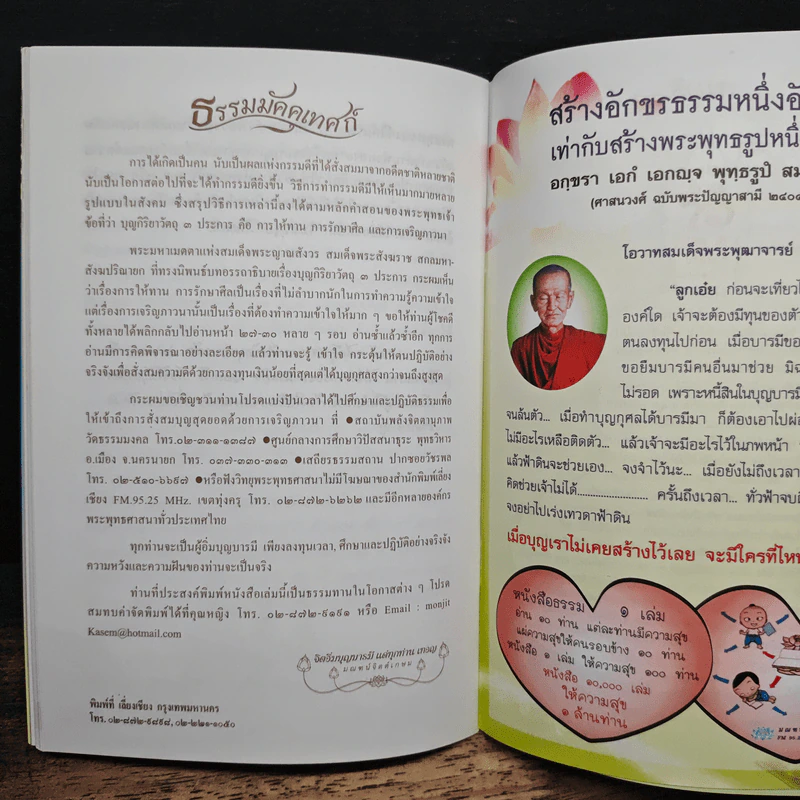 ธรรมมัคคุเทศก์
การได้เกิดเป็นคน นับเป็นผลแห่งกรรมดีที่ได้สั่งสมมาจากอดีตชาติหลายชาติ
นับเป็นโอกาสต่อไปที่จะได้ทำกรรมดียิ่งขึ้น วิธีการทำกรรมดีมีให้เห็นมากมายหลาย
รูปแบบในสังคม ซึ่งสรุปวิธีการเหล่านี้ลงได้ตามหลักคำสอนของพระพุทธเจ้า
ข้อที่ว่า บุญกิริยาวัตถุ ๓ ประการ คือ การให้ทาน การรักษาศีล และการเจริญภาวนา
พระมหาเมตตาแห่งสมเด็จพระญาณสังวร สมเด็จพระสังฆราช สกลมหา-
สังฆปริณายก ที่ทรงนิพนธ์บทอรรถาธิบายเรื่องบุญกิริยาวัตถุ ๓ ประการ กระผมเห็น
ว่าเรื่องการให้ทาน การรักษาศีลเป็นเรื่องที่ไม่ลำบากนักในการทำความรู้ความเข้าใจ
แต่เรื่องการเจริญภาวนานั้นเป็นเรื่องที่ต้องทำความเข้าใจให้มาก ๆ ขอให้ท่านผู้โชคดี
ทั้งหลายได้พลิกกลับไปอ่านหน้า ๒๗-๓๐ หลาย ๆ รอบ อ่านซ้ำแล้วซ้ำอีก ทุกการ
อ่านมีการคิดพิจารณาอย่างละเอียด แล้วท่านจะรู้ เข้าใจ กระตุ้นให้ตนปฏิบัติอย่าง
จริงจังเพื่อสั่งสมความดีด้วยการลงทุนเงินน้อยที่สุดแต่ได้บุญกุศลสูงกว่าจนถึงสูงสุด
กระผมขอเชิญชวนท่านโปรดแบ่งปันเวลาได้ไปศึกษาและปฏิบัติธรรมเพื่อ
ให้เข้าถึงการสั่งสมบุญสุดยอดด้วยการเจริญภาวนา ที่ ●สถาบันพลังจิตตานุภาพ
วัดธรรมมงคล โทร.๐๒-๓๑๑-๑๓๘๗ ●ศูนย์กลางการศึกษาวิปัสสนาธุระ พุทธวิหาร
อ.เมือง จ.นครนายก โทร. ๐๓๗-๓๓๐-๓๑๓ ●เสถียรธรรมสถาน ปากซอยวัชรพล
โทร. ๐๒-๕๑๐-๖๖๙๗ ●หรือฟังวิทยุพระพุทธศาสนาไม่มีโฆษณาของสำนักพิมพ์เลี่ยง
เชียง FM.95.25 MHz. เขตทุ่งครุ โทร. ๐๒-๘๗๒-๖๒๖๒ และมีอีกหลายองค์กร
พระพุทธศาสนาทั่วประเทศไทย
ทุกท่านจะเป็นผู้อิ่มบุญบารมี เพียงลงทุนเวลา, ศึกษาและปฏิบัติอย่างจริงจัง
ความหวังและความฝันของท่านจะเป็นจริง
ท่านที่ประสงค์พิมพ์หนังสือเล่มนี้เป็นธรรมทานในโอกาสต่าง ๆ โปรด
สมทบค่าจัดพิมพ์ได้ที่คุณหญิง โทร. ๐๒-๘๗๒-๙๑๙๑ หรือ Email : monjit
Kasem@hotmail.com
มณฑปจิตต์เกษม
พิมพ์ที่ เลี่ยงเชียง กรุงเทพมหานคร
โทร. ๐๒-๘๗๒-๙๘๙๘, ๐๒-๒๒๑-๑๐๕๐
สร้างอักขรธรรมหนึ่งอั
เท่ากับสร้างพระพุทธรูปหนึ่
อกฺขรา เอกํ เอกญฺจ พุทฺธรูปํ สม
(ศาสนวงศ์ ฉบับพระปัญญาสามี ๒๔๐๔
โอวาทสมเด็จพระพุฒาจารย์
"ลูกเอ๋ย ก่อนจะเที่ยวไ
องค์ใด เจ้าจะต้องมีทุนของตัว
ตนลงทุนไปก่อน เมื่อบารมีขอ
ขอยืมบารมีคนอื่นมาช่วย มิฉ
ไม่รอด เพราะหนี้สินในบุญบารมี
จนล้นตัว... เมื่อทำบุญกุศลได้บารมีมา ก็ต้องเอาไปผ่อ
ไม่มีอะไรเหลือติดตัว... แล้วเจ้าจะมีอะไรไว้ในภพหน้า
แล้วฟ้าดินจะช่วยเอง... จงจำไว้นะ... เมื่อยังไม่ถึงเวลา
คิดช่วยเจ้าไม่ได้...................... ครั้นถึงเวลา... ทั่วฟ้าจบดิ
จงอย่าไปเร่งเทวดาฟ้าดิน
เมื่อบุญเราไม่เคยสร้างไว้เลย จะมีใครที่ไหน
หนังสือธรรม ๑ เล่ม
อ่าน ๑๐ ท่าน แต่ละท่านมีความสุข
แผ่ความสุขให้คนรอบข้าง ๑๐ ท่าน
หนังสือ ๑ เล่ม ให้ความสุข ๑๐๐ ท่าน
หนังสือ ๑๐,๐๐๐ เล่ม
ให้ความสุข
๑ ล้านท่าน